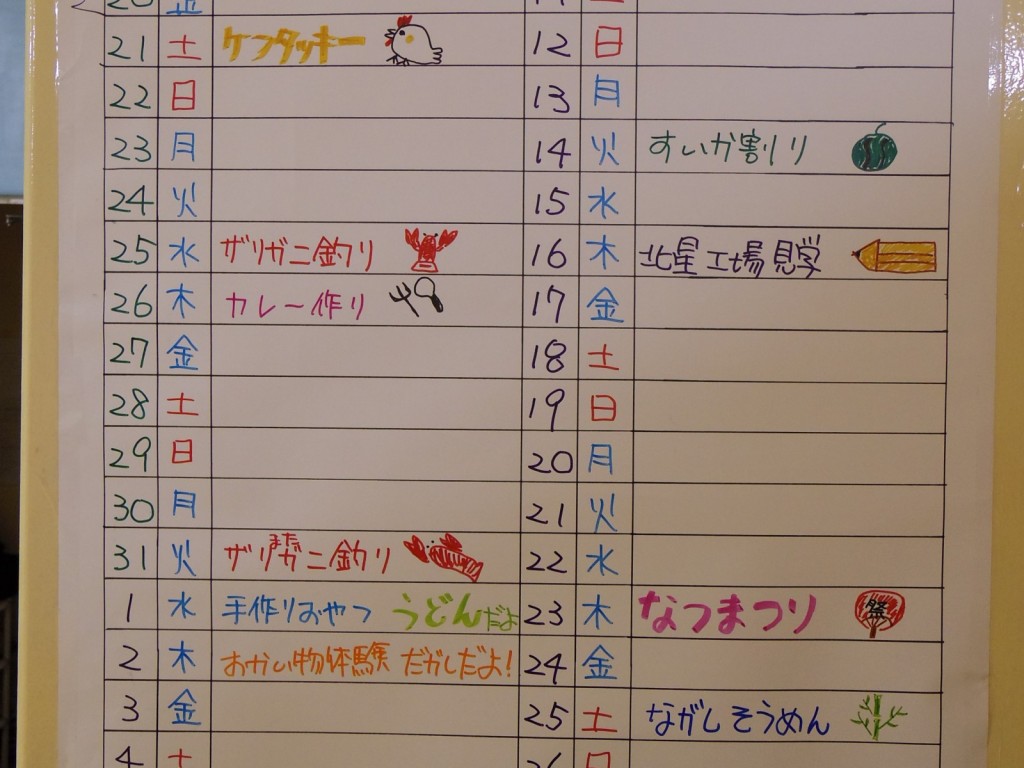 20 金
21 土 ケンタッキー
22 日
23 月
24 火
25 水 ザリガニ釣り
26 木 カレー作り
27 金
28 土
29 日
30 月
31 火 ザリガニ釣り
まだ
1 水 手作りおやつ うどんだよ
2 木 おかい物体験 だがしだよ!
3 金
4 土
12 日
13 月
14 火 すいか割り
15 水
16 木 北星工場見学
17 金
18 土
19 日
20 月
21 火
22 水
23 木 なつまつり 祭
24 金
25 土 ながしそうめん
26 日